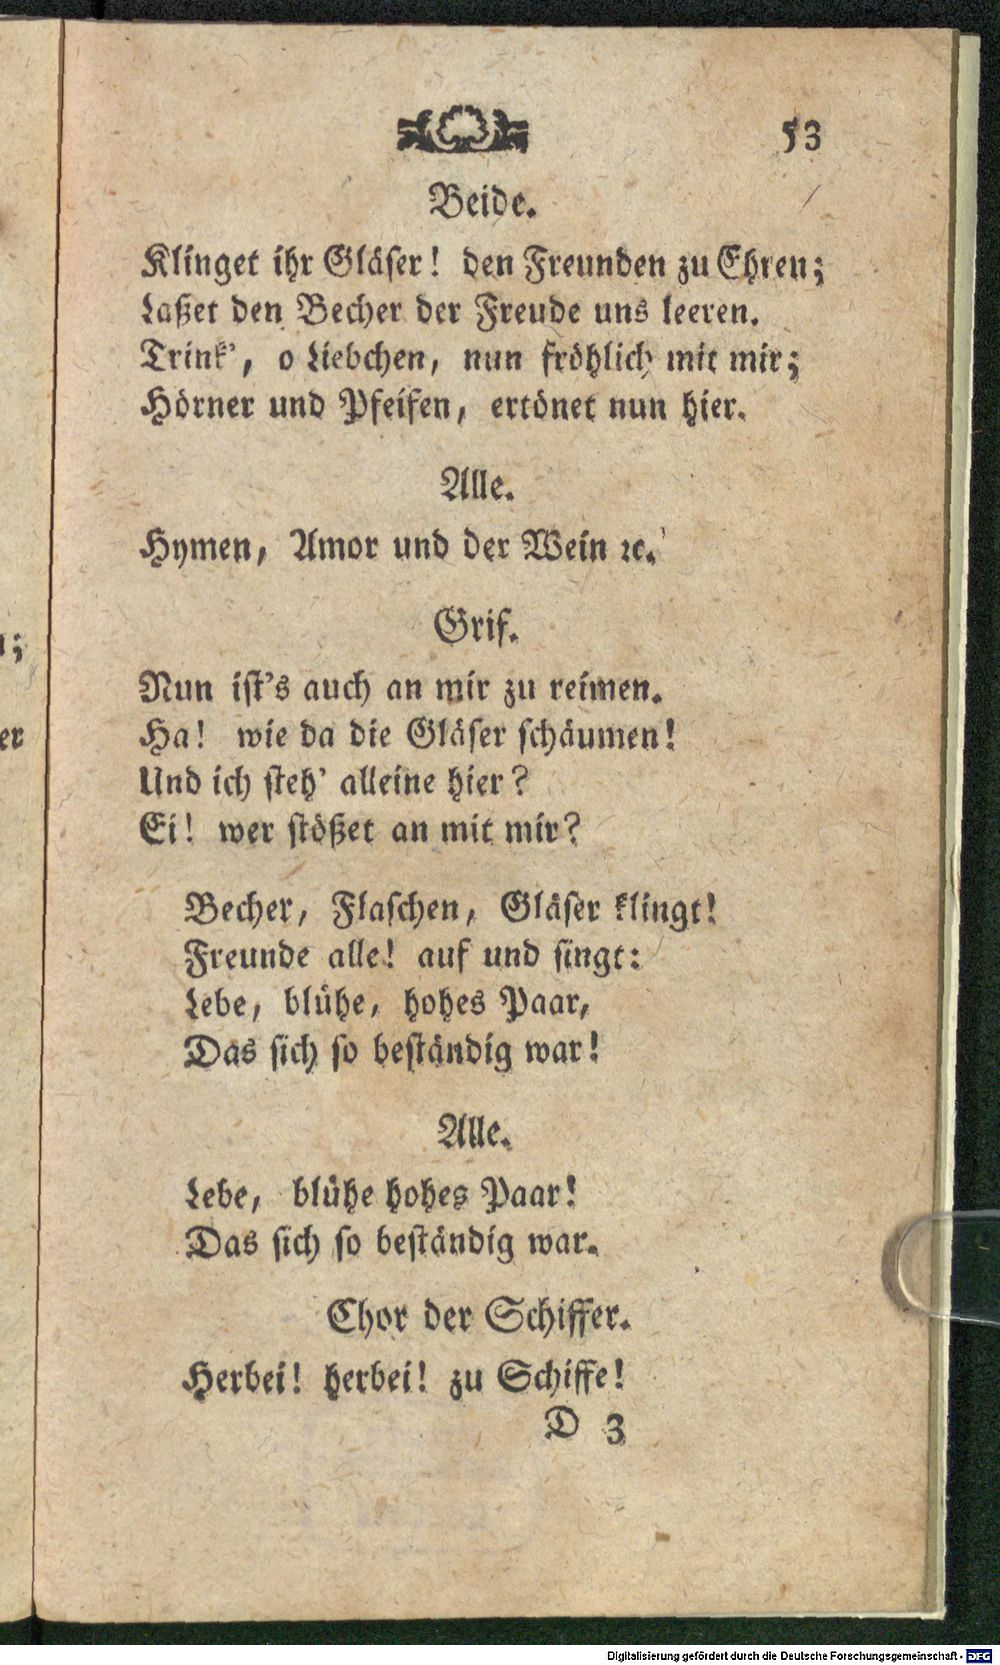 53
Beide.
Klinget ihr Gläser! den Freunden zu Ehren;
Laßet den Becher der Freude uns leeren.
Trink', o Liebchen, nun fröhlich mit mir;
Hörner und Pfeifen, ertönet nun hier.
Alle.
Hymen, Amor und der Wein ꝛc.
Grif.
Nun ist's auch an mir zu reimen.
Ha! wie da die Gläser schäumen!
Und ich steh' alleine hier?
Ei! wer stößet an mit mir?
Becher, Flaschen, Gläser klingt!
Freunde alle! auf und singt:
Lebe, blühe, hohes Paar,
Das sich so beständig war!
Alle.
Lebe, blühe hohes Paar!
Das sich so beständig war.
Chor der Schiffer.
Herbei! herbei! zu Schiffe!
D 3
n;
er
Digitalisierung gefördert durch die Deutsche Forschungsgemeinschaft - DFG